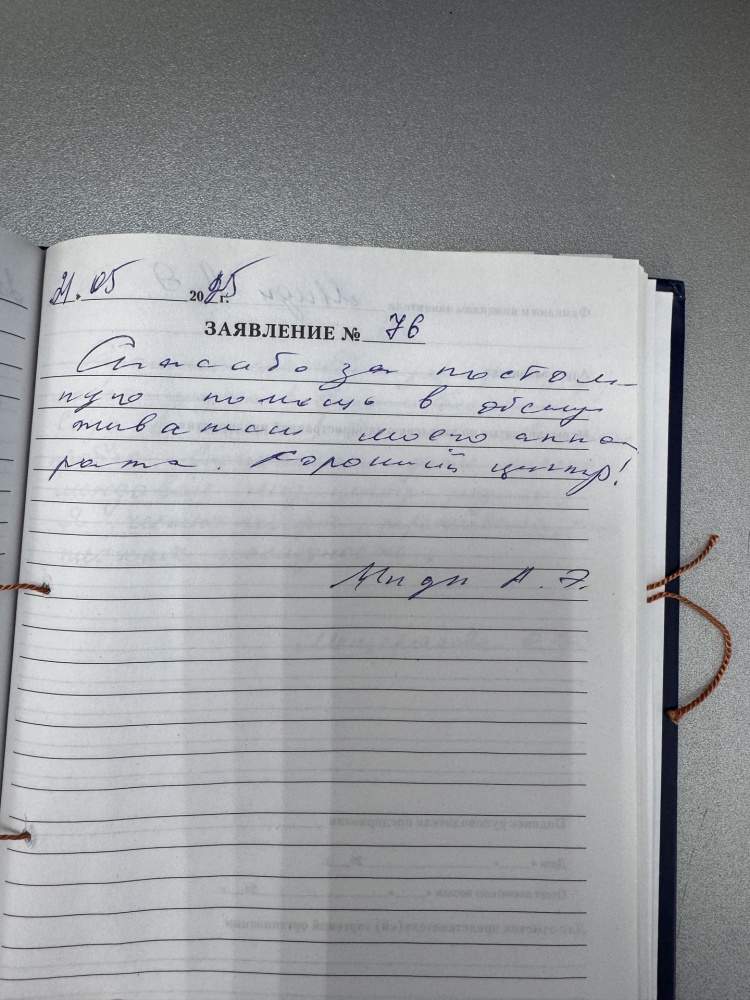 21. 05 2025 г.
ЗАЯВЛЕНИЕ № 76
Спасибо за постоян-
ную помощь в обслу
живании моего аппа-
рата. Хороший центр!
Мидн А. Э.